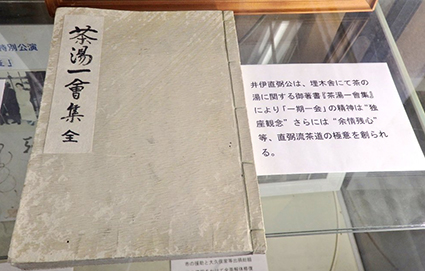 茶湯一會集 全
井伊直弼公は、埋木舎にて茶の
湯に関する御著書『茶湯一會集』
により「一期一会」の精神は“独
座観念” さらには “余情残心”
等、直弼流茶道の極意を創られ
る。
特別公演